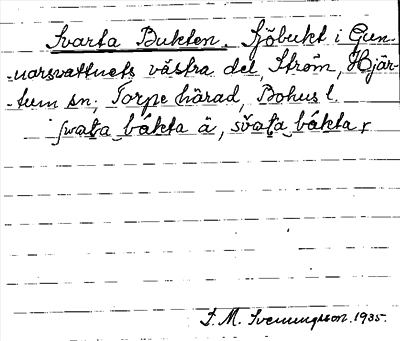 Svarta Bukten. Sjöbukt i Gun-
narsvattnets västra del, Ström, Hjär-
tum sn; Torpe härad, Bohus l.
svat̲a bákta ä, svat̲a bákta,
S. M. Svenungsson. 1935.